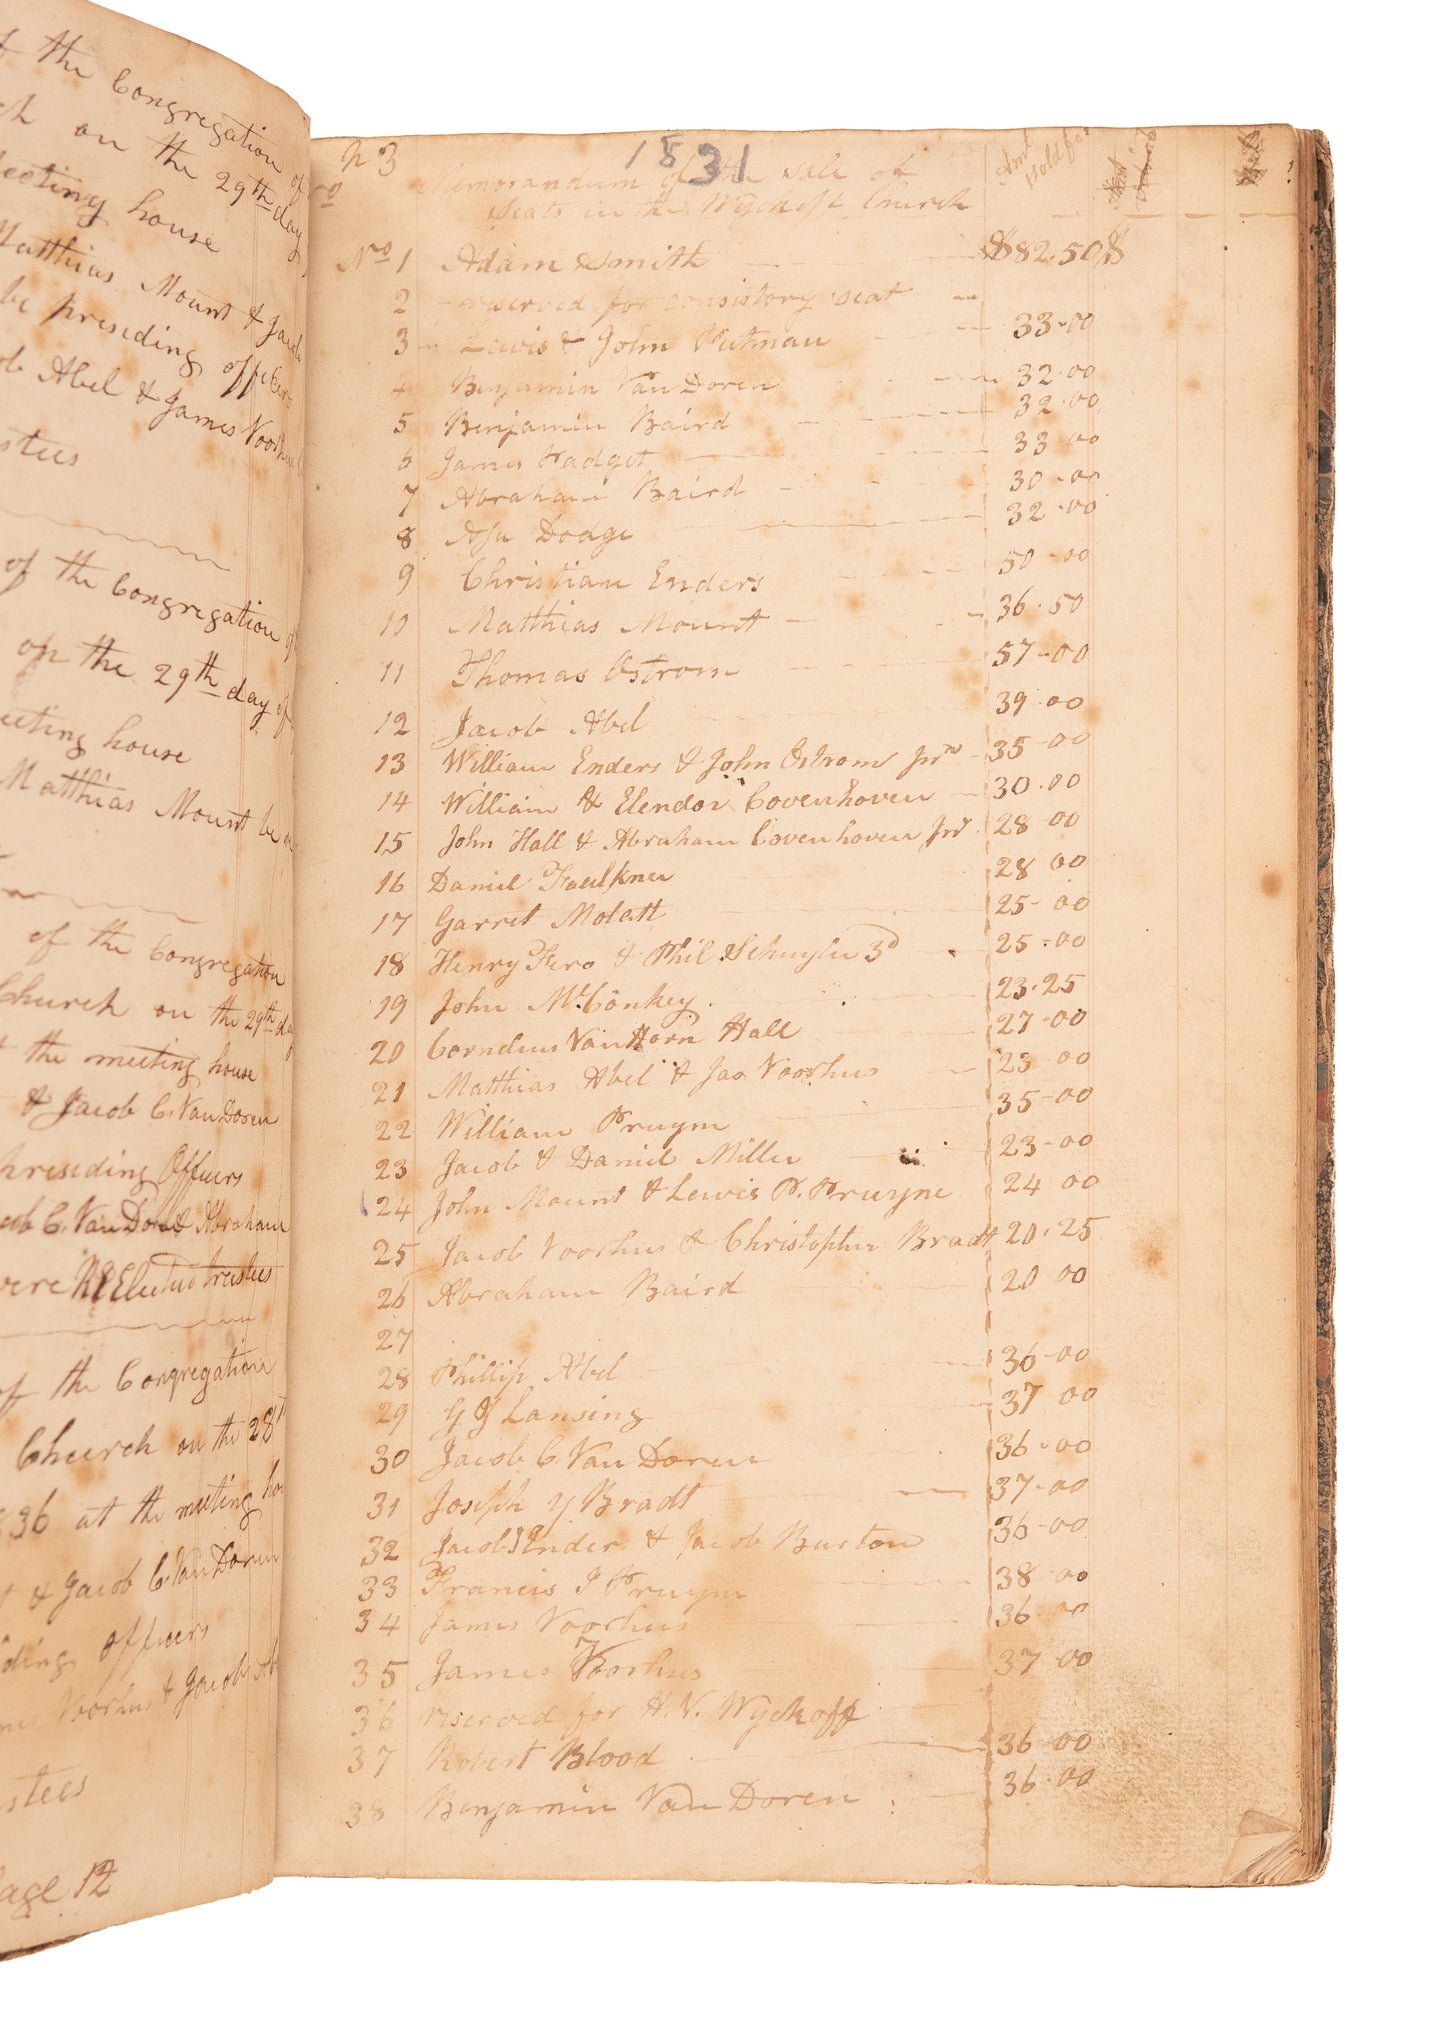 of the Congregation of
on the 29th day
Meeting house
Matthias Mount & Jacob
be presiding officers
Abel & James Voorhees
of the Congregation of
on the 29th day of
meeting house
Matthias Mount be
of the Congregation
Church on the 29th day
the meeting house
& Jacob C. Van Doren
presiding Officers
C. Van Doren & Abraham
were Elected trustees
of the Congregation
Church on the 28th
36 at the meeting
& Jacob C. Van Doren
officers
Voorhus & Jacob Ab
page 12
P 3
1831
Memorandum of the sale of
Seats in the Wyckoff Church
Amt Sold for
No 1 Adam Smith $82.50 $
2 reserved for consistory seat
3 Lewis & John Putman 33-00
4 Benjamin Van Doren 32-00
5 Benjamin Baird 32-00
6 James Padget 33-00
7 Abraham Baird 30-00
8 Asa Dodge 32-00
9 Christian Enders 50-00
10 Matthias Mount 36-50
11 Thomas Ostrom 57-00
12 Jacob Abel 39-00
13 William Enders & John Ostrom Jnr 35-00
14 William & Elendor Covenhoven 30-00
15 John Hall & Abraham Covenhoven Jnr 28-00
16 Daniel Faulkner 28-00
17 Garret Molatt 25-00
18 Henry Fero & Phil Schuyler 3d 25-00
19 John McConkey 23-25
20 Cornelius Van Horn Hall 27-00
21 Matthias Abel & Jas Voorhus 23-00
22 William Pruyne 35-00
23 Jacob & Daniel Miller 23-00
24 John Mount & Lewis P. Pruyne 24-00
25 Jacob Voorhus & Christopher Bradt 20-25
26 Abraham Baird 20-00
27
28 Phillip Abel 36-00
29 G J Lansing 37-00
30 Jacob C Van Doren 36-00
31 Joseph Y Bradt 37-00
32 Jacob P Ender & Jacob Burton 36-00
33 Francis I Pruyne 38-00
34 James Voorhus 36-00
35 James Voorhus 37-00
36 reserved for H. V. Wyckoff
37 Robert Blood 36-00
38 Benjamin Van Doren 36-00